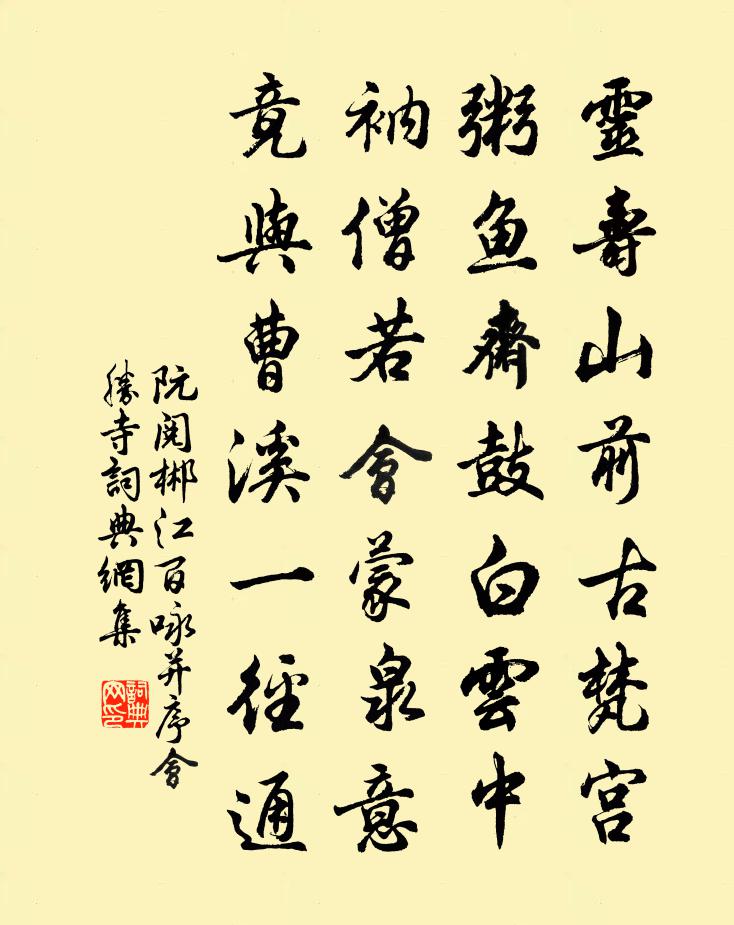 靈壽山前古梵宮
粥魚齋鼓白雲中
衲僧若會蒙泉意
竟與曹溪一徑通
阮閱郴江百咏并序會
勝寺詞典網集
詞典網印